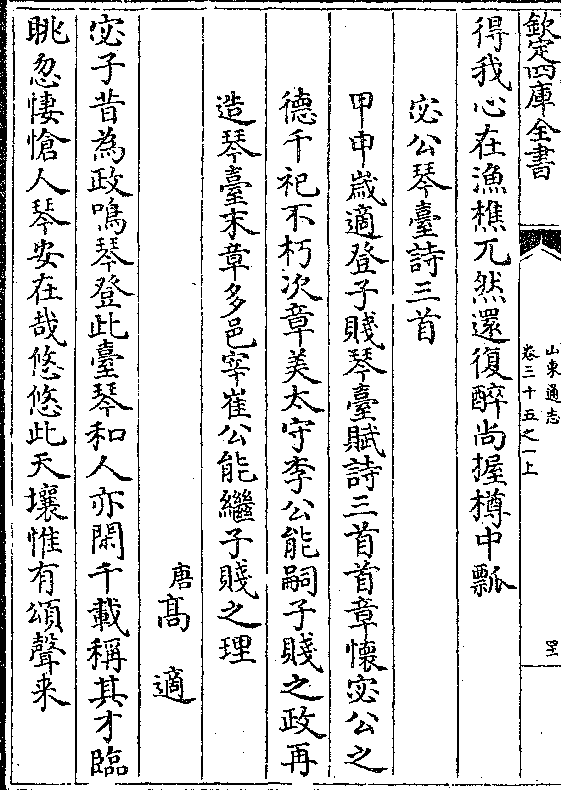 欽定四庫全書
山東通志
卷三十五之一上
得我心在漁樵兀然還復醉尚握樽中瓢
宓公琴臺詩三首
甲申嵗適登子賤琴臺賦詩三首首章懷宓公之
德千祀不朽次章美太守李公能嗣子賤之政再
造琴臺末章多邑宰崔公能繼子賤之理
唐高適
宓子昔為政鳴琴登此臺琴和人亦閑千載稱其才臨
眺忽悽愴人琴安在哉悠悠此天壤惟有頌聲来